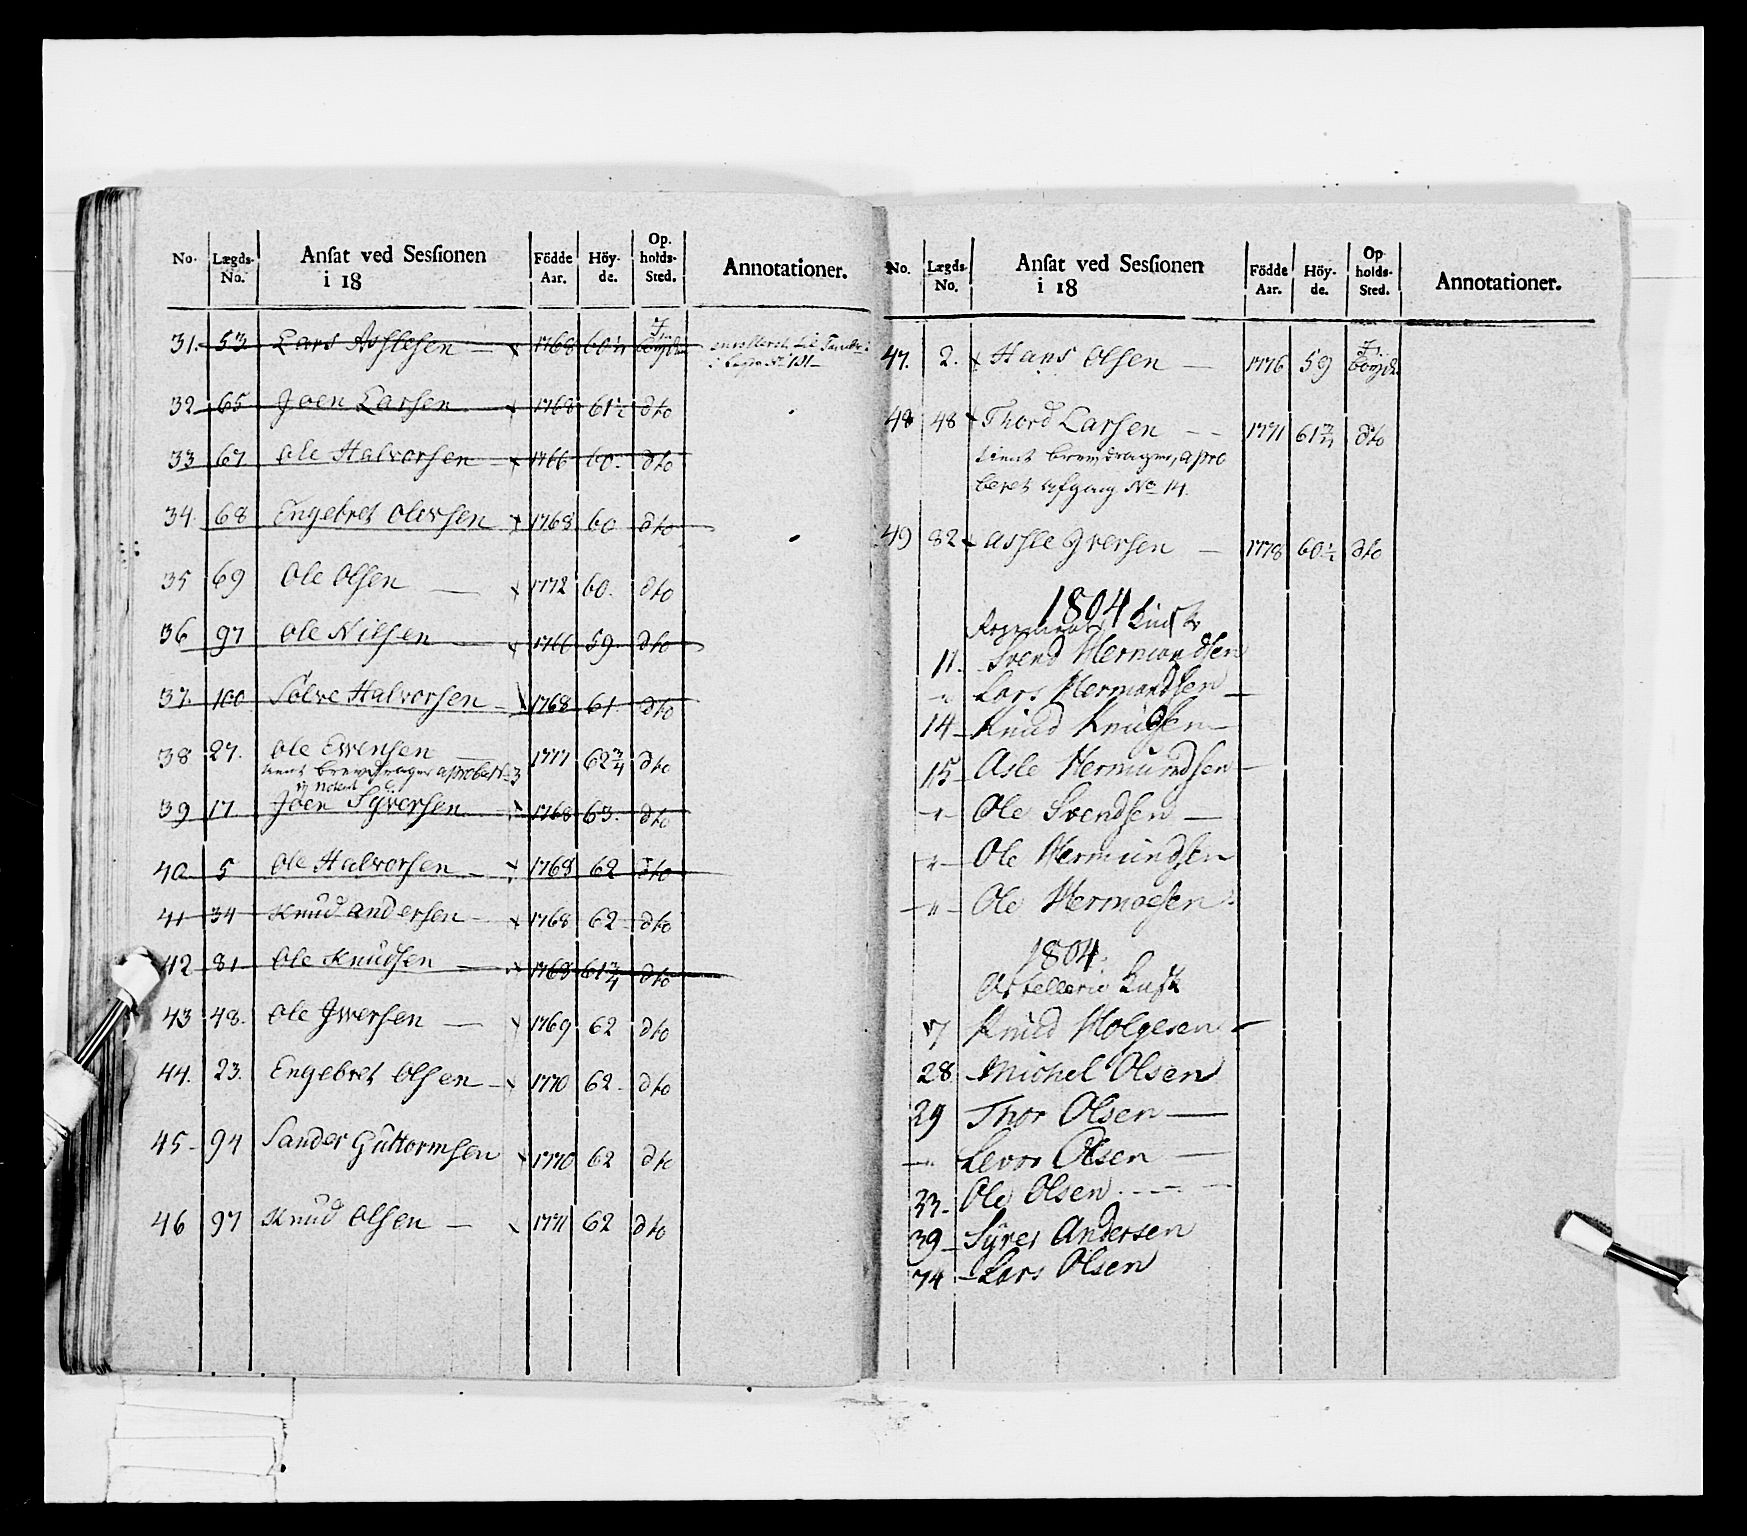 No. Lægds-No. Ansat ved Sessionen i 18 Födde Aar. Höy-de. Op-holds-Sted. Annotationer.
31. 53 Lars Aslesen 1768 60 1/4 I Bøyd
32 65 Joen Larsen 1768 61 1/2 dto
33 67 Ole Halvorsen 1766 60. dto
34. 68 Engebret Olevsen 1768 60 dto
35 69 Ole Olsen 1772 60. dto
36 97 Ole Nilsen 1766 59. dto
37. 100 Sølve Halvorsen 1768 61. dto
38 27. Ole Evensen 1777 62 3/4 dto
39 17 Joen Syversen 1768 63. dto
40 5 Ole Halvorsen 1768 62 dto
41 34 Knud Andersen 1768 62 dto
42 81 Ole Knudsen 1768 61 3/4 dto
43 48. Ole Iversen 1769 62 dto
44. 23. Engebret Olsen 1770 62 dto
45 94 Sander Guttormsen 1770 62 dto
46 97 Knud Olsen 1771 62 dto
No. Lægds-No. Ansat ved Sessionen i 18 Födde Aar. Höy-de. Op-holds-Sted. Annotationer.
47. 2. Hans Olsen 1776 59 I Bøyd
48 48 Thord Larsen 1771 61 3/4 dto
tient brevdrager, apro
beret afgang No 14.
49 82 Asle Iversen 1778 60 1/2 dto
1804
11. Svend Hermandsen
" Lars Hermandsen
14 Knud Knudsen
15 Asle Hermundsen
" Ole Svendsen
" Ole Hermundsen
" Ole Hermoesen
1804
Artellerie Kusk
7 Knud Holgesen
28 Michel Olsen
29 Thor Olsen
" Levor Olsen
33. Ole Olsen
39 Syver Andersen
74 Lars Olsen